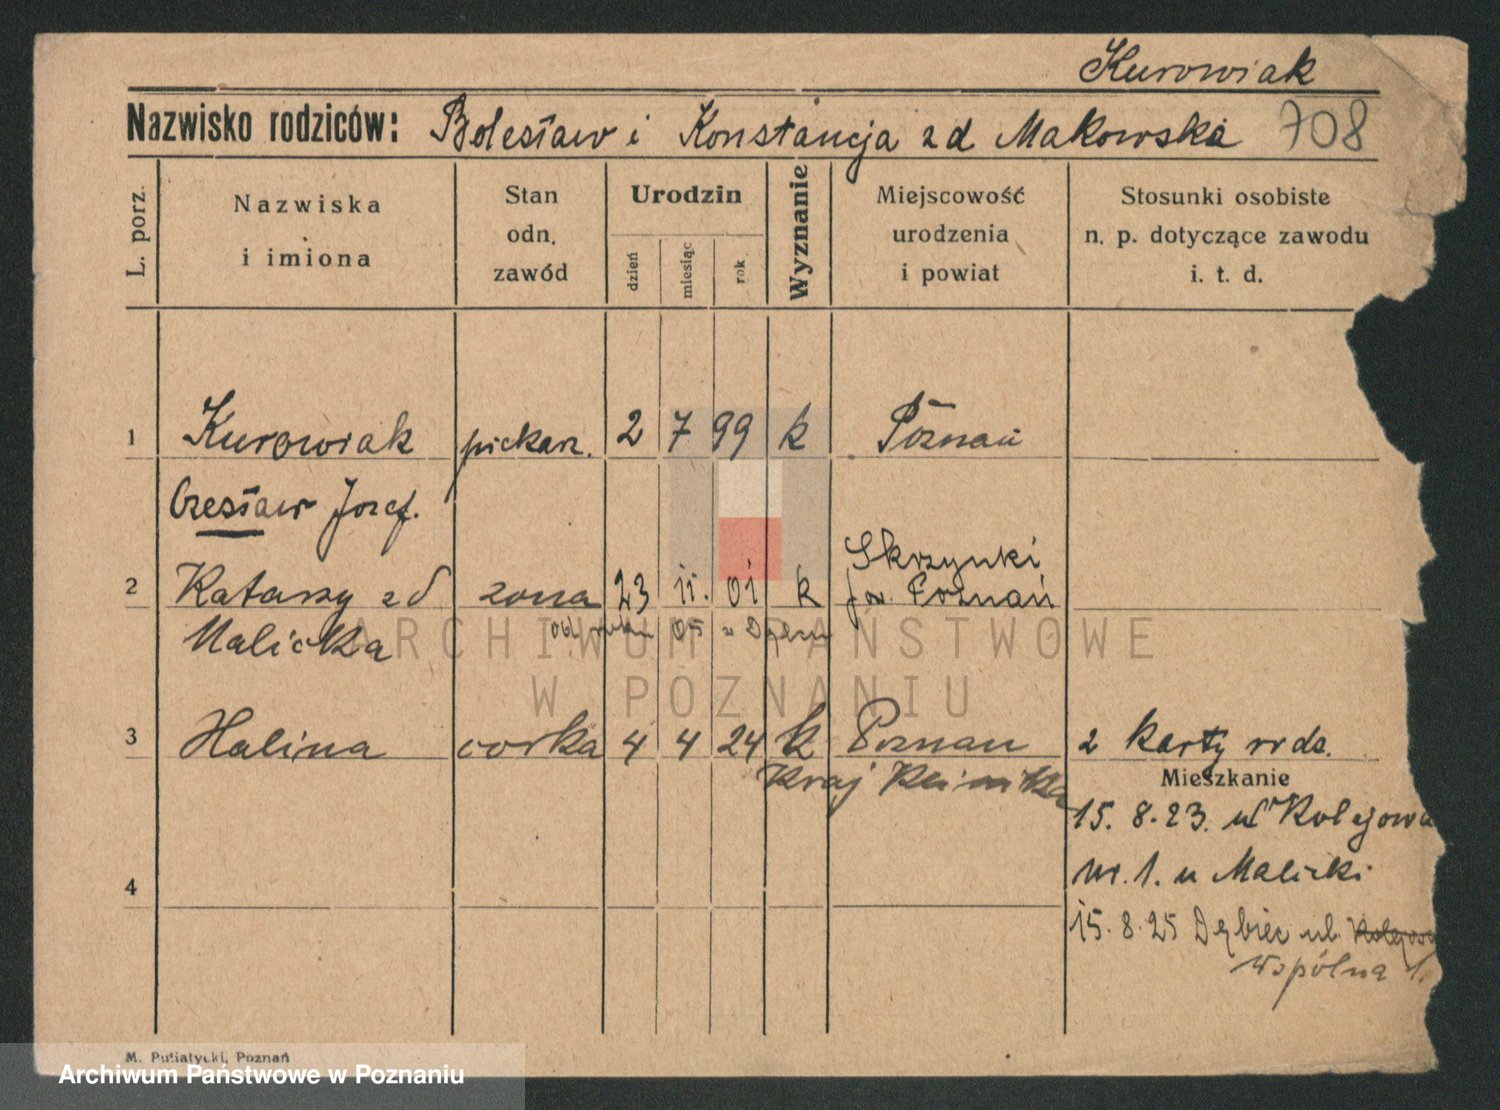 Kurowiak
Nazwisko rodziców: Bolesław i Konstancja zd Makowska 708
L. porz.
Nazwiska
i imiona
Stan
odn.
zawód
Urodzin
dzień
miesiąc
rok
Wyznanie
Miejscowość
urodzenia
i powiat
Stosunki osobiste
n. p. dotyczące zawodu
i. t. d.
1 Kurowiak piekarz. 2 7 99 k Poznań
Czesław Józef.
Skrzynki
2 Katarzy zd żona 23 11. 01 k pow. Poznań
Malicka 05 w
ARCHIWUM PAŃSTWOWE
W POZNANIU
3 Halina córka 4 4 24 k Poznań 2 karty
Kraj Klinika
Mieszkanie
15. 8. 23. ul Kolejowa
nr. 1. u Malicki
4
15. 8. 25 Dębiec ul. Kolejowa
Wspólna
M. Putiatycki, Poznań
Archiwum Państwowe w Poznaniu